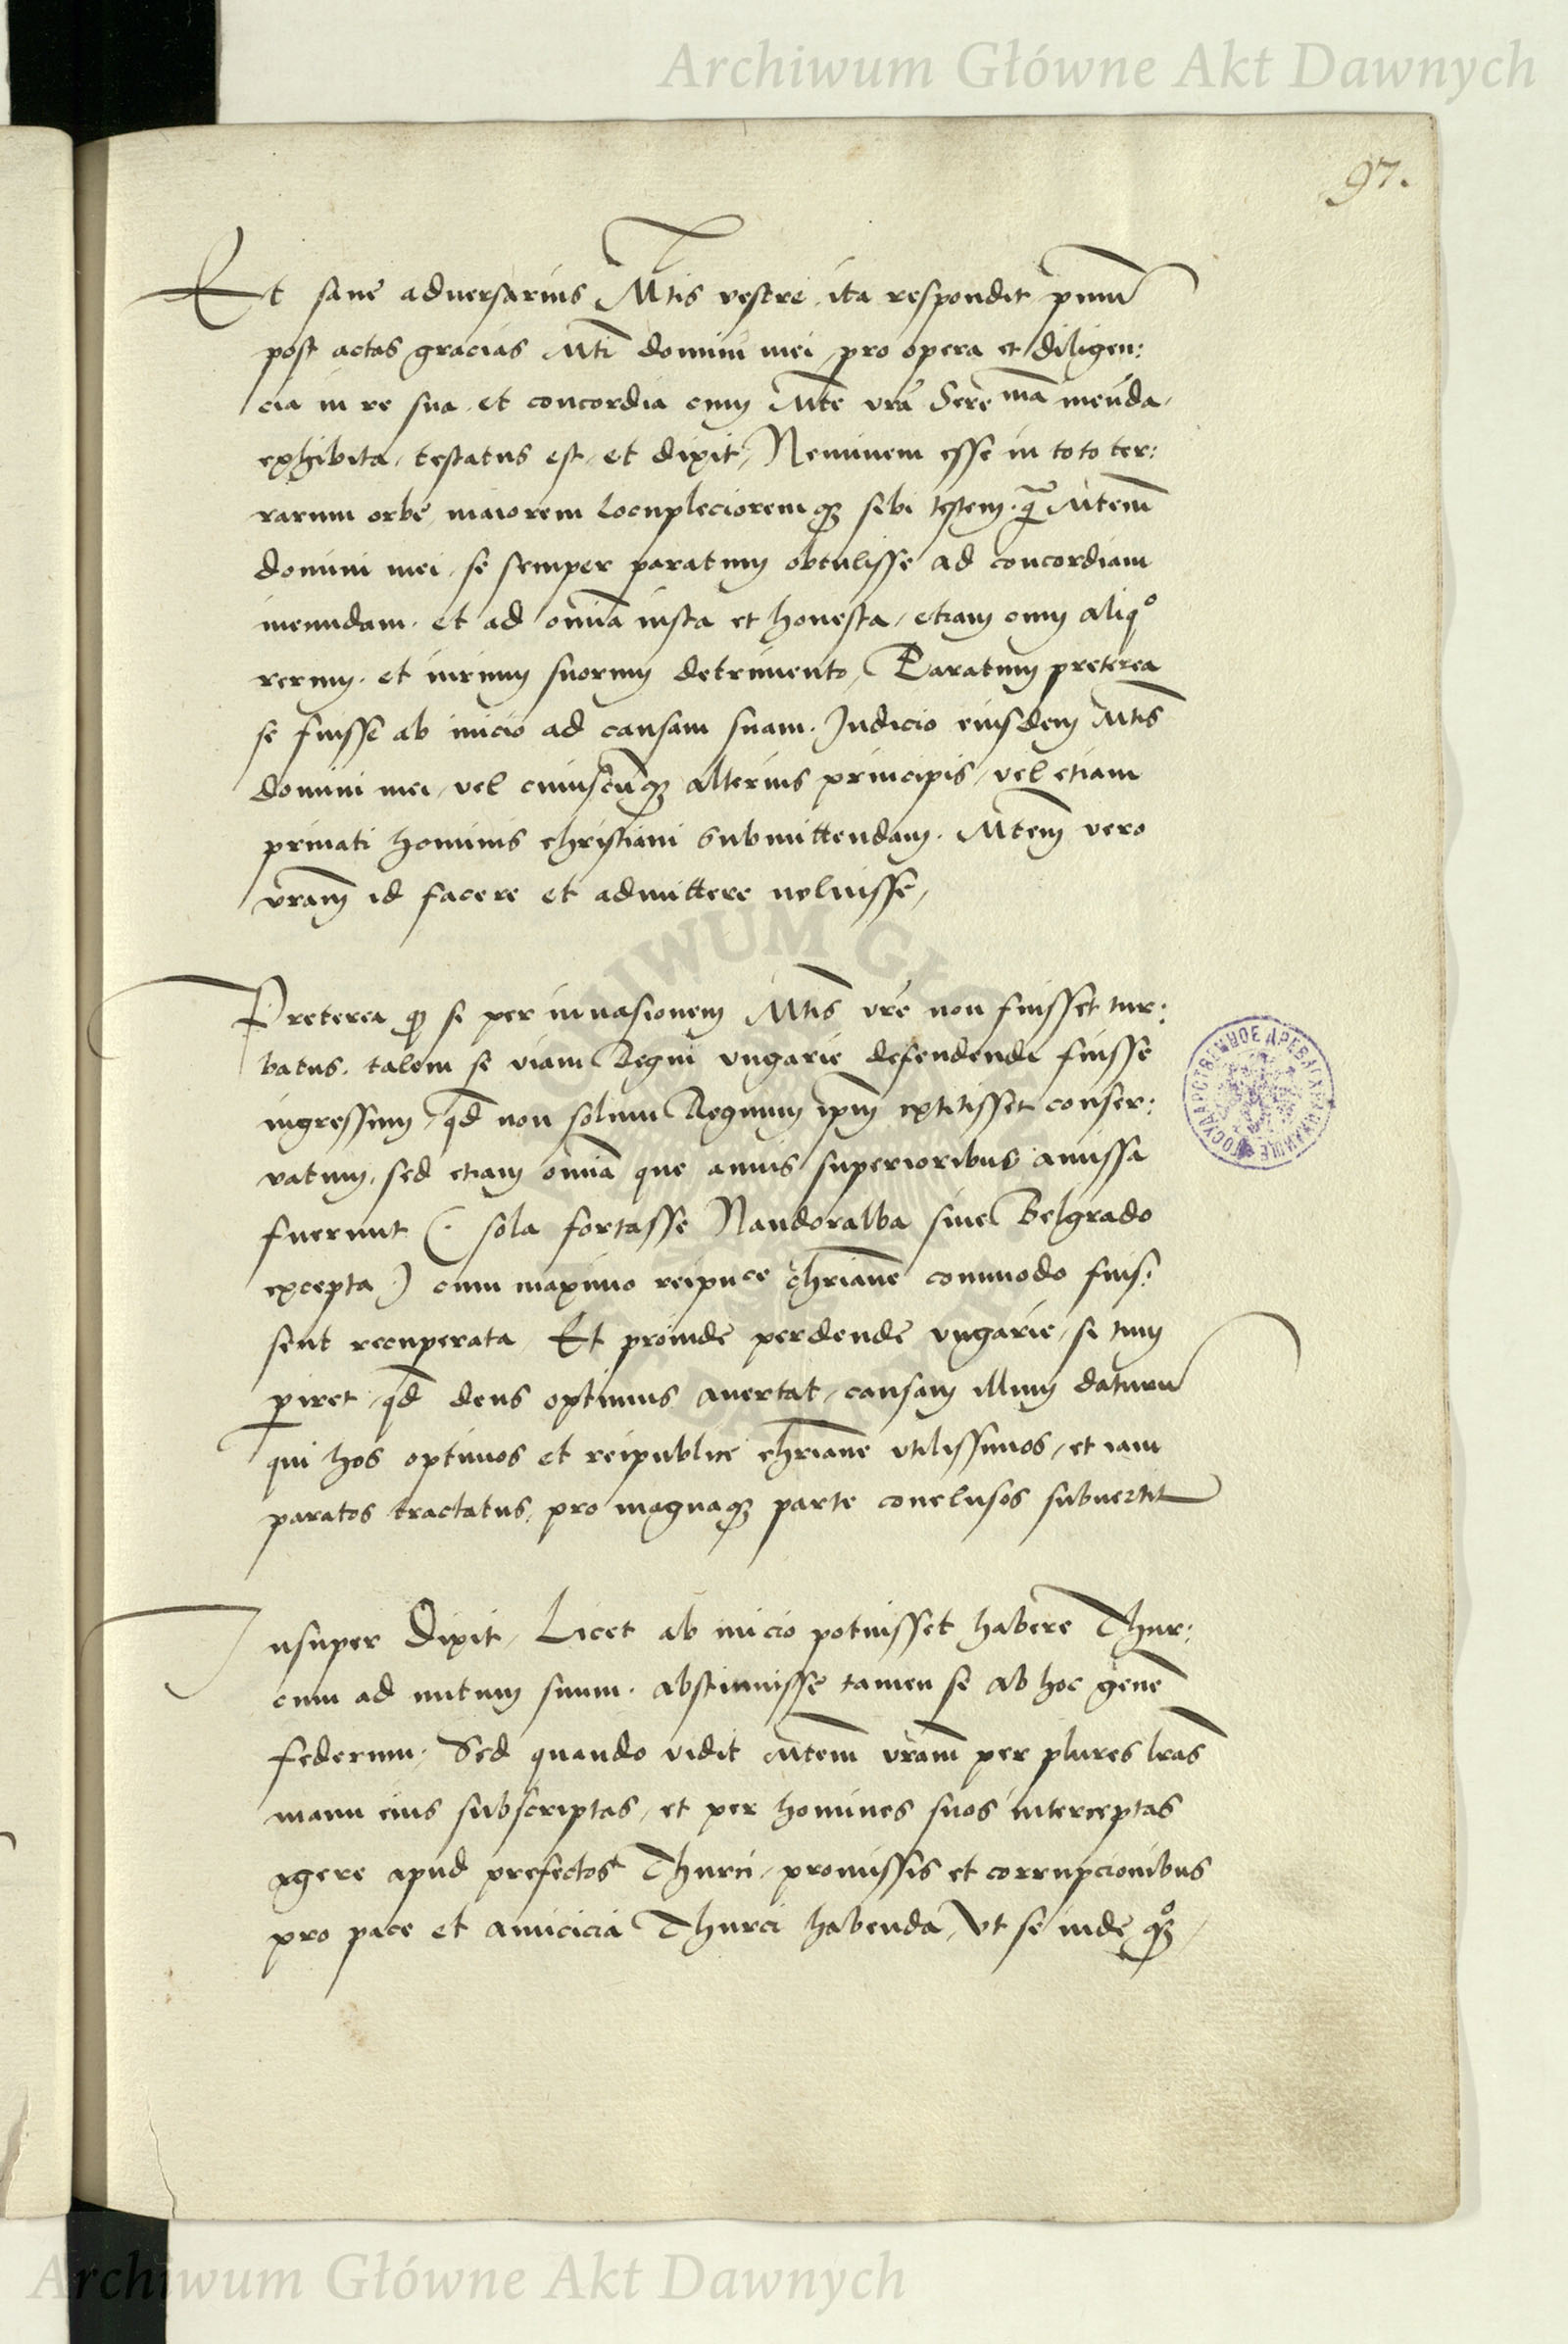 Archiwum Główne Akt Dawnych
97.
Et sane adversarius Mtis vestre ita respondit pnm̄
post actas gracias Mti domini mei pro opera et diligen:
cia in re sua et concordia cum Mte vrā Sere mā ineūda,
exhibita, testatus est, et dixit, Neminem esse in toto ter:
rarum orbe, maiorem locupleciorem qȝ sibi testem. q̄ Mtem̄
domini mei, se semper paratum obtulisse ad concordiam
ineundam. et ad omīa iusta et honesta, etiam cum aliqº
rerum. et iurium suorum detrimento, Paratum preterea
se fuisse ab inicio ad causam suam. Judicio eiusdem Mtis̄
domini mei, vel cuiuscūqȝ alterius principis, vel etiam
privati hominis christiani submittendam. Mtem̄ vero
vram̄ id facere et admittere noluisse,
Preterea qȝ si per invasionem Mtis̄ vrē non fuisset tur:
batus. talem se viam Regni ungarie defendendi fuisse
ingressum, qd̄ non solum Regnum ipm̄ extitisset conser:
vatum, sed etiam omīa que annis superioribus amissa
fuerunt (. sola fortasse Nandoralba sive Belgrado
excepta .) cum maximo reipuce chrīane commodo fuis:
sent recuperata, Et proinde perdende ungarie, si tum
piret, qd̄ deus optimus avertat, causam illum daturū
qui hos optimos et reipublice chrīane utilissimos, et iam
paratos tractatus, pro magnaqȝ parte conclusos subvertit
Insuper Dixit, Licet ab inicio potuisset habere Thur:
cum ad nutum suum. abstinuisse tamen se ab hoc genē
federum. Sed quando vidit Mtem̄ vram̄ per plures lrās
manu eius subscriptas, et per homines suos interceptas
agere apud prefectos Thurci, promissis et corrupcionibus
pro pace et amicicia Thurci habenda, Ut se inde qºȝ,
Archiwum Główne Akt Dawnych